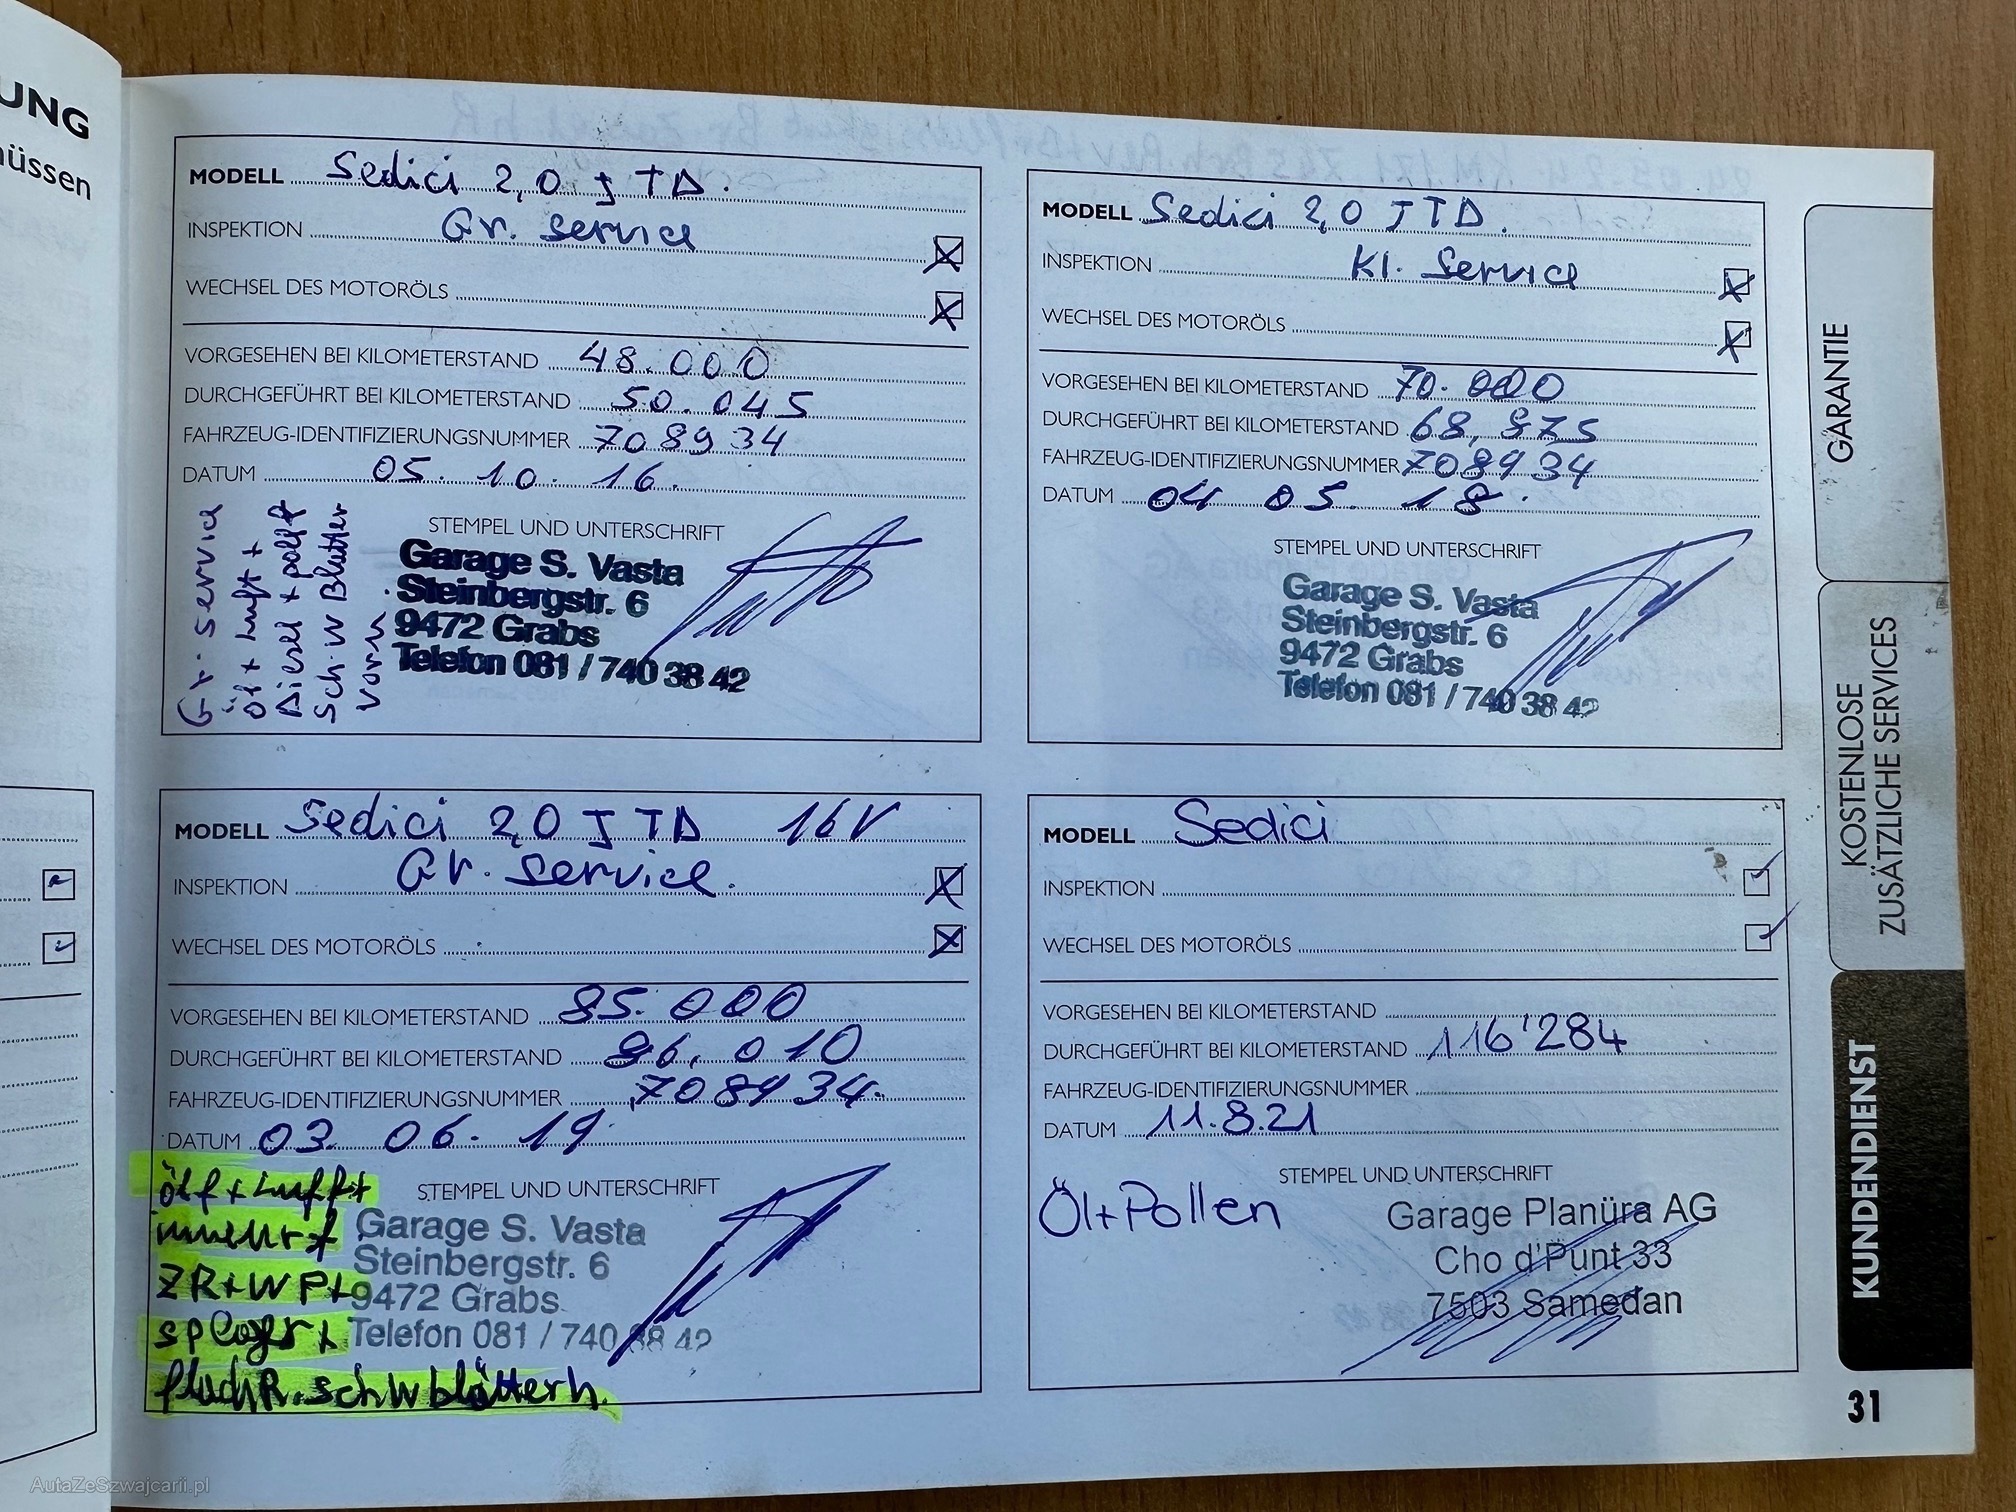 UNG
üssen
MODELL Sedici 2,0 JTD.
INSPEKTION Gr. service
WECHSEL DES MOTORÖLS
VORGESEHEN BEI KILOMETERSTAND 48.000
DURCHGEFÜHRT BEI KILOMETERSTAND 50.045
FAHRZEUG-IDENTIFIZIERUNGSNUMMER 708934
DATUM 05.10.16.
STEMPEL UND UNTERSCHRIFT
Gr. service
öl + Luft +
Diesel + poll f
Sch. W Blätter
vorn.
Garage S. Vasta
Steinbergstr. 6
9472 Grabs
Telefon 081 / 740 38 42
MODELL Sedici 2,0 JTD.
INSPEKTION Kl. Service
WECHSEL DES MOTORÖLS
VORGESEHEN BEI KILOMETERSTAND 70.000
DURCHGEFÜHRT BEI KILOMETERSTAND 68,875
FAHRZEUG-IDENTIFIZIERUNGSNUMMER 708934
DATUM 04 05. 18.
STEMPEL UND UNTERSCHRIFT
Garage S. Vasta
Steinbergstr. 6
9472 Grabs
Telefon 081 / 740 38 42
MODELL Sedici 2,0 JTD 16V
INSPEKTION Gr. service.
WECHSEL DES MOTORÖLS
VORGESEHEN BEI KILOMETERSTAND 85.000
DURCHGEFÜHRT BEI KILOMETERSTAND 86.010
FAHRZEUG-IDENTIFIZIERUNGSNUMMER 708934.
DATUM 03 06. 19.
STEMPEL UND UNTERSCHRIFT
ölf + Luff+
ZR+WP+
flachR. schwblättern.
Garage S. Vasta
Steinbergstr. 6
9472 Grabs
Telefon 081 / 740 38 42
MODELL Sedici
INSPEKTION
WECHSEL DES MOTORÖLS
VORGESEHEN BEI KILOMETERSTAND
DURCHGEFÜHRT BEI KILOMETERSTAND 116'284
FAHRZEUG-IDENTIFIZIERUNGSNUMMER
DATUM 11.8.21
STEMPEL UND UNTERSCHRIFT
Öl+Pollen
Garage Planüra AG
Cho d'Punt 33
7503 Samedan
GARANTIE
KOSTENLOSE
ZUSÄTZLICHE SERVICES
KUNDENDIENST
31
AutaZeSzwajcarii.pl